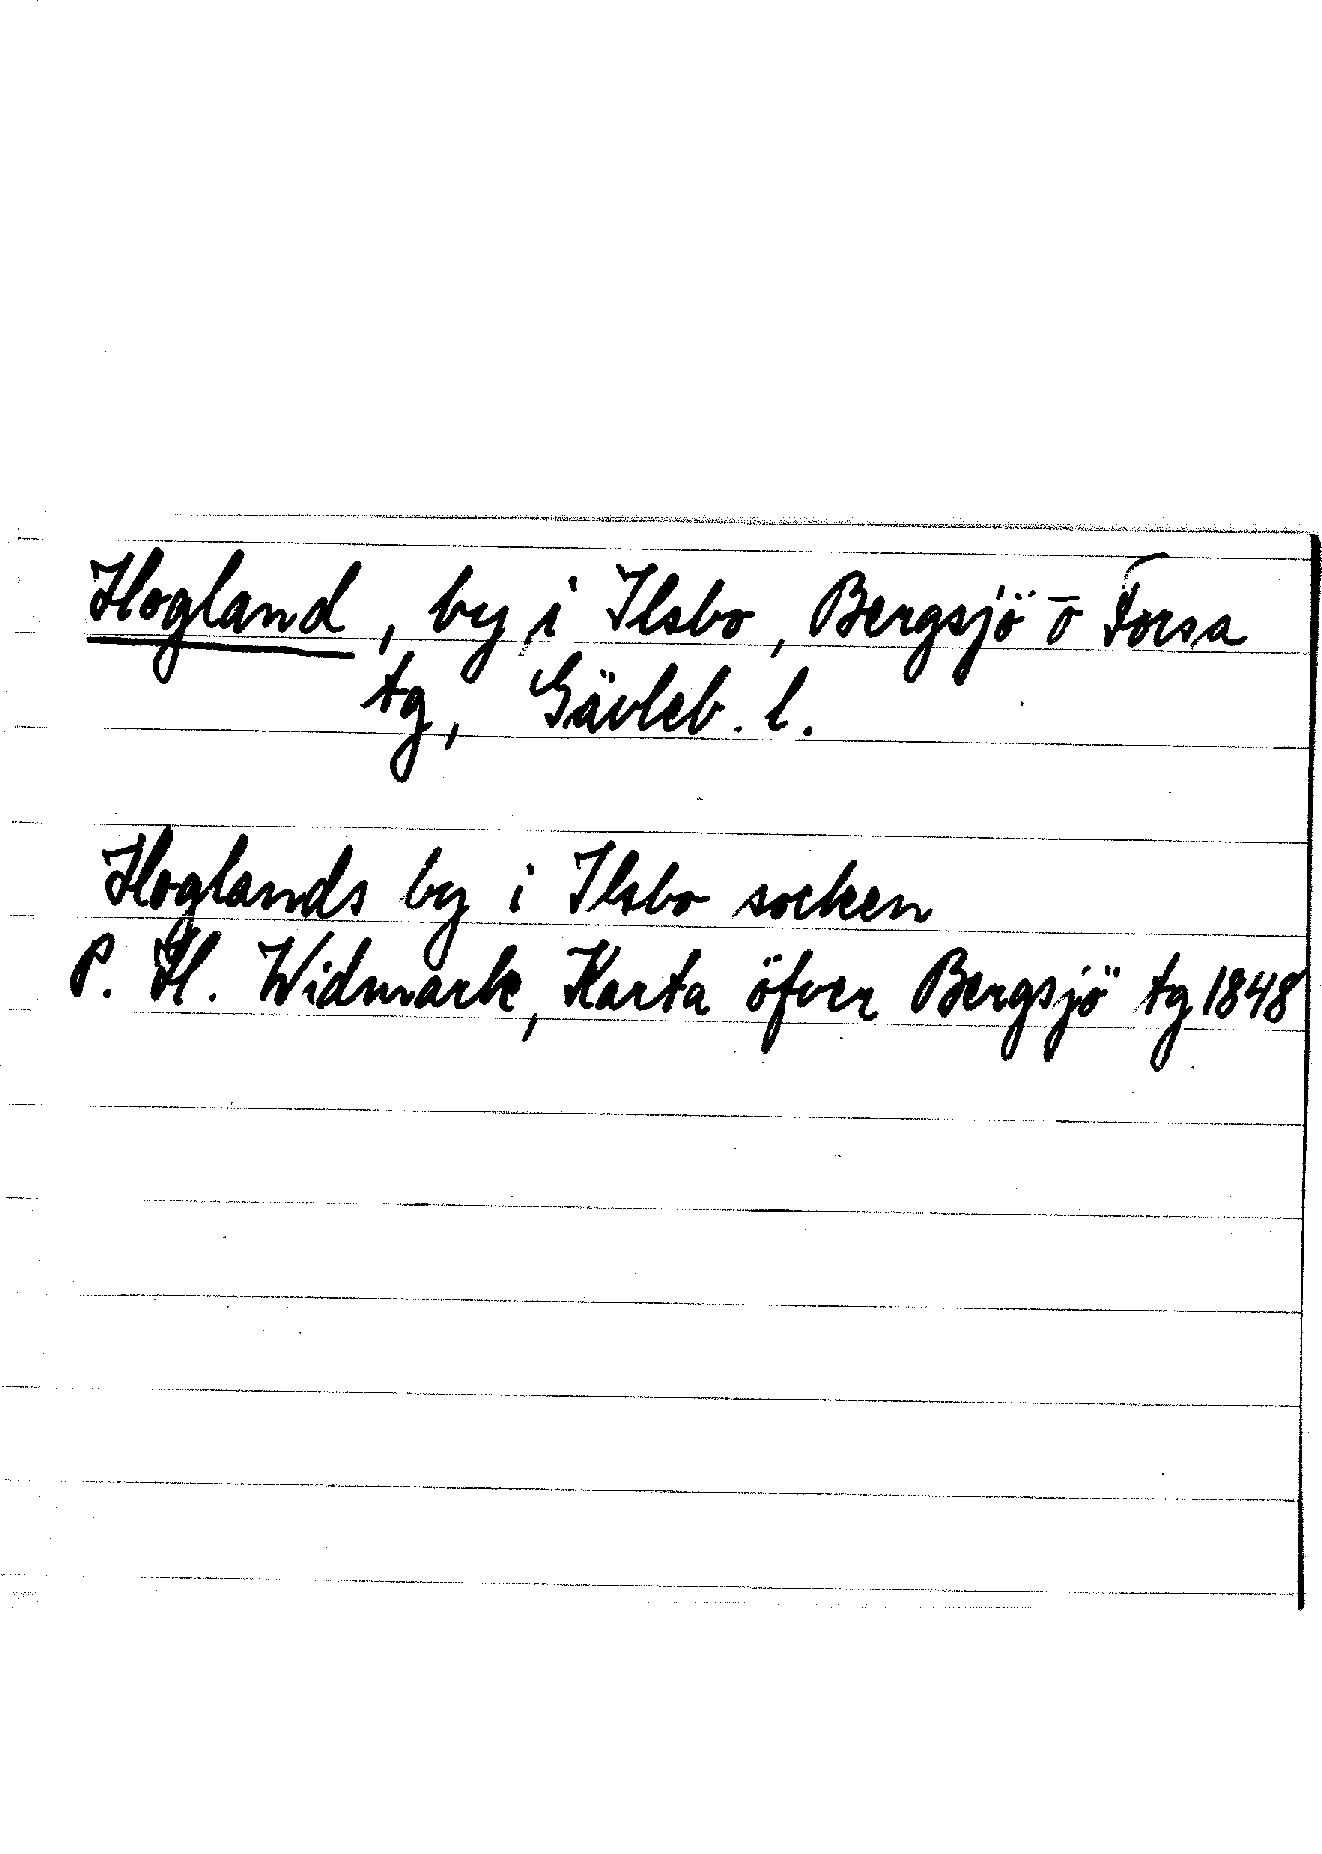 Hogland, by i Ilsbo, Bergsjö o Forsa
tg, Gävleb. l.
Hoglands by i Ilsbo socken
P. H. Widmark, Karta öfver Bergsjö tg 1848